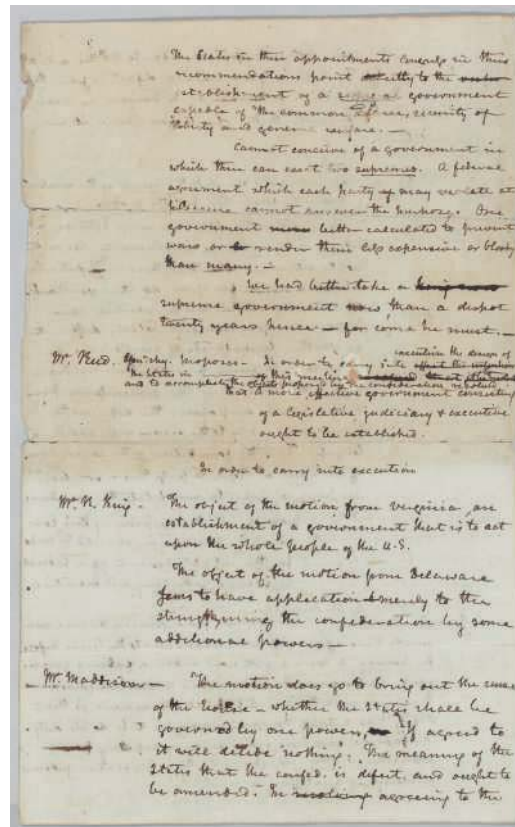 The States in their appointments Congress in their
recommendations point directly to the
establishment of a government
capable of "the common defence, security of
liberty and general welfare. —
Cannot conceive of a government in
which there can exist two supremes. A federal
agreement which each party may violate at
pleasure cannot answer the purpose. One
government better calculated to prevent
wars or render them less expensive or bloody
than many. —
We had better take a
supreme government now than a despot
twenty years hence — for come he must. —
Mr. Reed. proposes - In order to carry into execution the design of
the States in this meeting
and to accomplish the objects proposed by the confederation
that a more effective government consisting
of a legislative judiciary & executive
ought to be established.
In order to carry into execution
Mr. R. King - The object of the motion from Virginia, an
establishment of a government that is to act
upon the whole people of the U.S.
The object of the motion from Delaware
seems to have application merely to the
strengthening the confederation by some
additional powers —
Mr. Maddison — The motion does go to bring out the sense
of the House - whether the States shall be
governed by one power. If agreed to
it will decide nothing. The meaning of the
States that the confed. is defect. and ought to
be amended. In agreeing to the